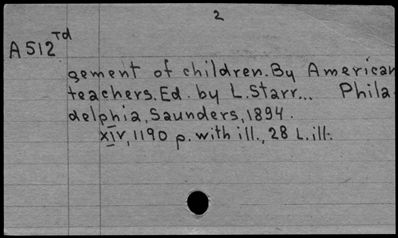 2
A512 Td
gement of children. By American
teachers. Ed. by L. Starr... Phila-
delphia, Saunders, 1894.
XIV, 1190 p. with ill., 28 L. ill.